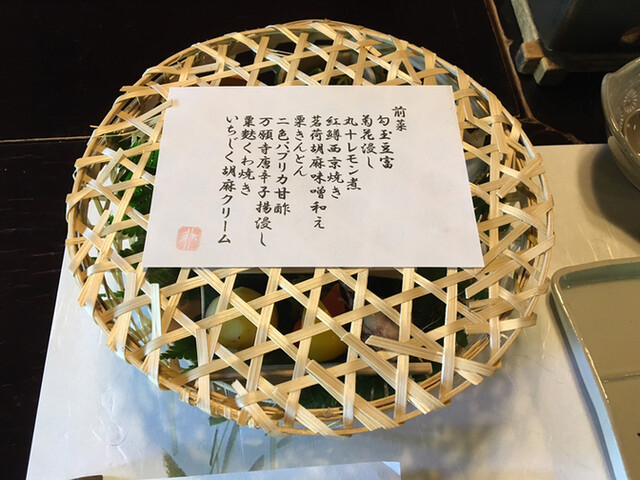 前菜
勾玉豆富
菊花浸し
丸十レモン煮
紅鱒西京焼き
茗荷胡麻味噌和え
栗きんとん
二色パプリカ甘酢
万願寺唐辛子揚浸し
粟麩くわ焼き
いちじく胡麻クリーム